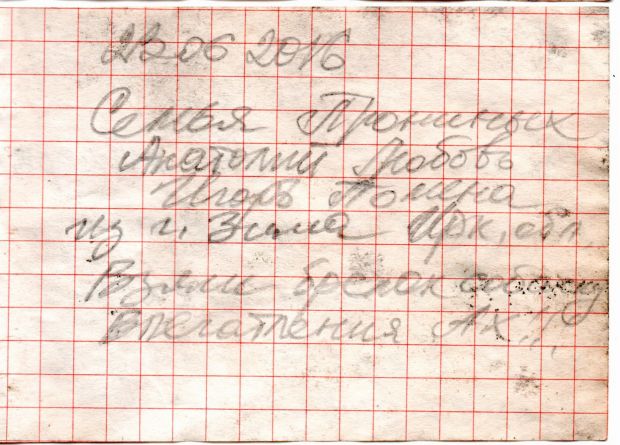 23.06 2016
Семья Прониных
Анатолий Любовь
Игорь Помера
из г. Зима Ирк. обл.
Взяли брелок собаку
Впечатления Ах!!!